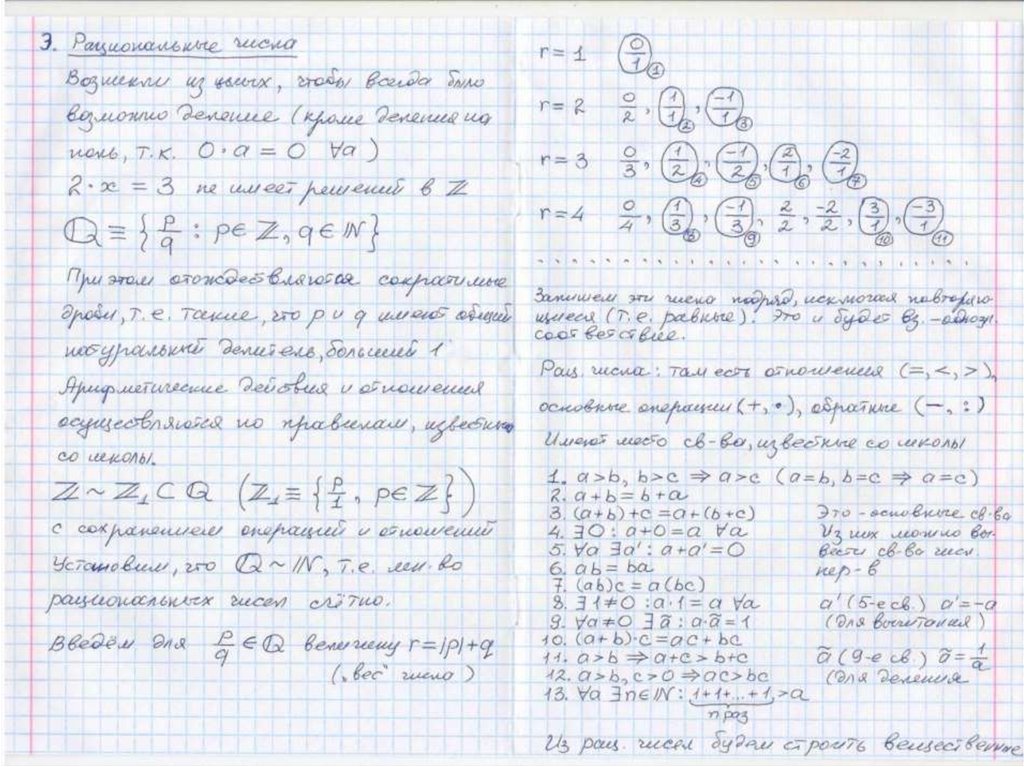 3. Рациональные числа
Возникли из целых, чтобы всегда было
возможно деление (кроме деления на
ноль, т.к. 0·a = 0 ∀a)
2·x = 3 не имеет решений в ℤ
ℚ ≡ {p/q : p∈ℤ, q∈ℕ}
При этом отождествляются сократимые
дроби, т.е. такие, что p и q имеют общий
натуральный делитель, больший 1
Арифметические действия и отношения
осуществляются по правилам, известным
со школы.
ℤ ~ ℤ₁ ⊂ ℚ (ℤ₁ ≡ {p/1, p∈ℤ})
с сохранением операций и отношений
Установим, что ℚ ~ ℕ, т.е. мн-во
рациональных чисел счётно.
Введём для p/q ∈ ℚ величину r=|p|+q
(„вес" числа)
r = 1 0/1 ①
r = 2 0/2, 1/1 ②, -1/1 ③
r = 3 0/3, 1/2 ④, -1/2 ⑤, 2/1 ⑥, -2/1 ⑦
r = 4 0/4, 1/3 ⑧, -1/3 ⑨, 2/2, -2/2, 3/1 ⑩, -3/1 ⑪
. . . . . . . . . . . . . . . . . . . . . . . .
Запишем эти числа подряд, исключая повторяю-
щиеся (т.е. равные). Это и будет вз.-однозн.
соответствие.
Рац. числа: там есть отношения (=, <, >),
основные операции (+, •), обратные (−, :)
Имеют место св-ва, известные со школы
1. a>b, b>c ⇒ a>c (a=b, b=c ⇒ a=c)
2. a+b = b+a
3. (a+b)+c = a+(b+c) Это - основные св-ва
4. ∃0 : a+0=a ∀a Из них можно вы-
5. ∀a ∃a' : a+a'=0 вести св-ва числ.
6. ab = ba нер-в
7. (ab)c = a(bc)
8. ∃1≠0 : a·1 = a ∀a a' (5-е св.) a'=-a
9. ∀a≠0 ∃ã : a·ã=1 (для вычитания)
10. (a+b)·c = ac+bc
11. a>b ⇒ a+c > b+c ã (9-е св.) ã = 1/a
12. a>b, c>0 ⇒ ac>bc (для деления
13. ∀a ∃n∈ℕ : 1+1+...+1 > a
n раз
Из рац. чисел будем строить вещественные